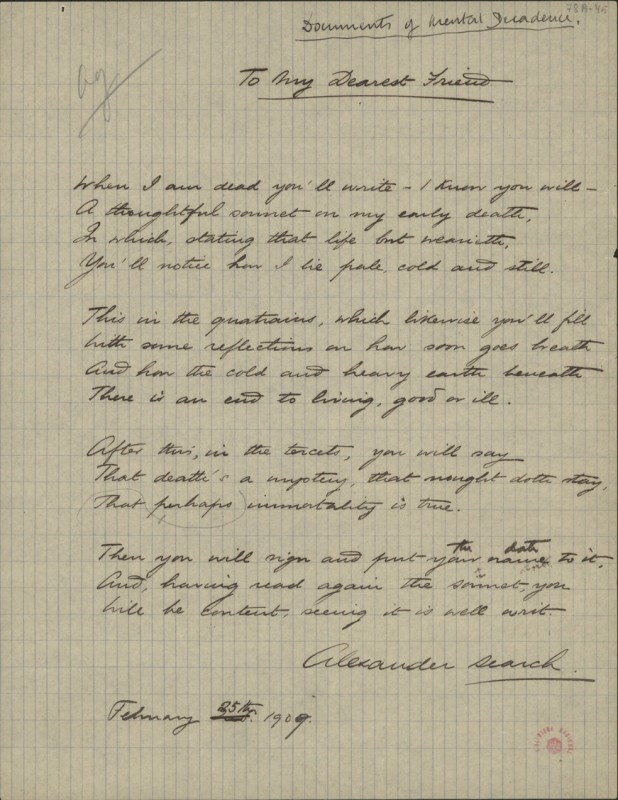 78B-45
Documents of Mental Decadence.
To My Dearest Friend
When I am dead you'll write — I know you will —
A thoughtful sonnet on my early death,
In which, stating that life but wearieth,
You'll notice how I lie pale, cold and still.
This in the quatrains, which likewise you'll fill
With some reflections on how soon goes breath
And how the cold and heavy earth beneath
There is an end to living, good or ill.
After this, in the tercets, you will say
That death's a mystery, that nought doth stay,
(That perhaps) immortality is true.
the date
Then you will sign and put your name to it,
And, having read again the sonnet, you
Will be content, seeing it is well writ.
Alexander Search.
25th
February 1909.